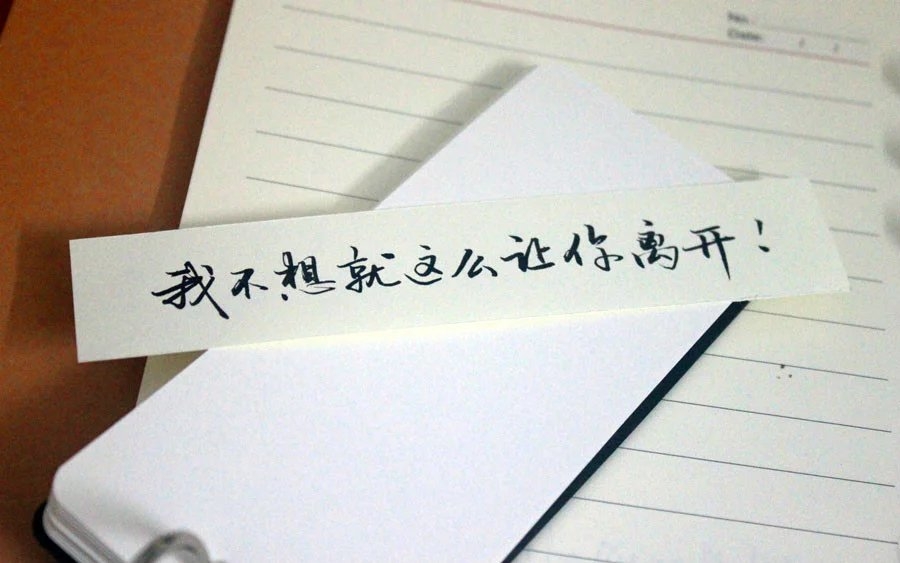 No.
Date.
我不想就这么让你离开！